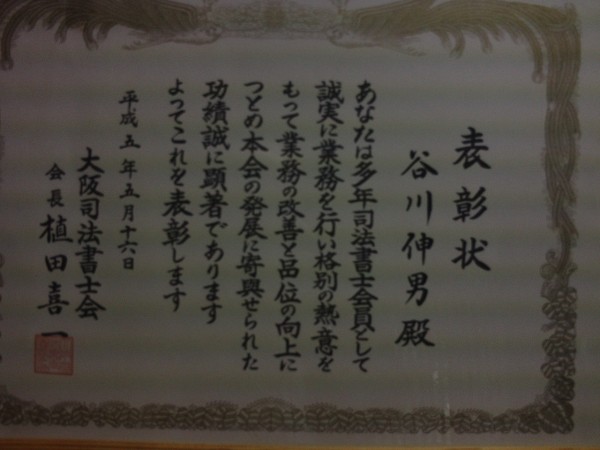 表彰状
谷川伸男殿
あなたは多年司法書士会員として
誠実に業務を行い格別の熱意を
もって業務の改善と品位の向上に
つとめ本会の発展に寄与せられた
功績誠に顕著であります
よってこれを表彰します
平成五年五月十六日
大阪司法書士会
会長 植田喜一